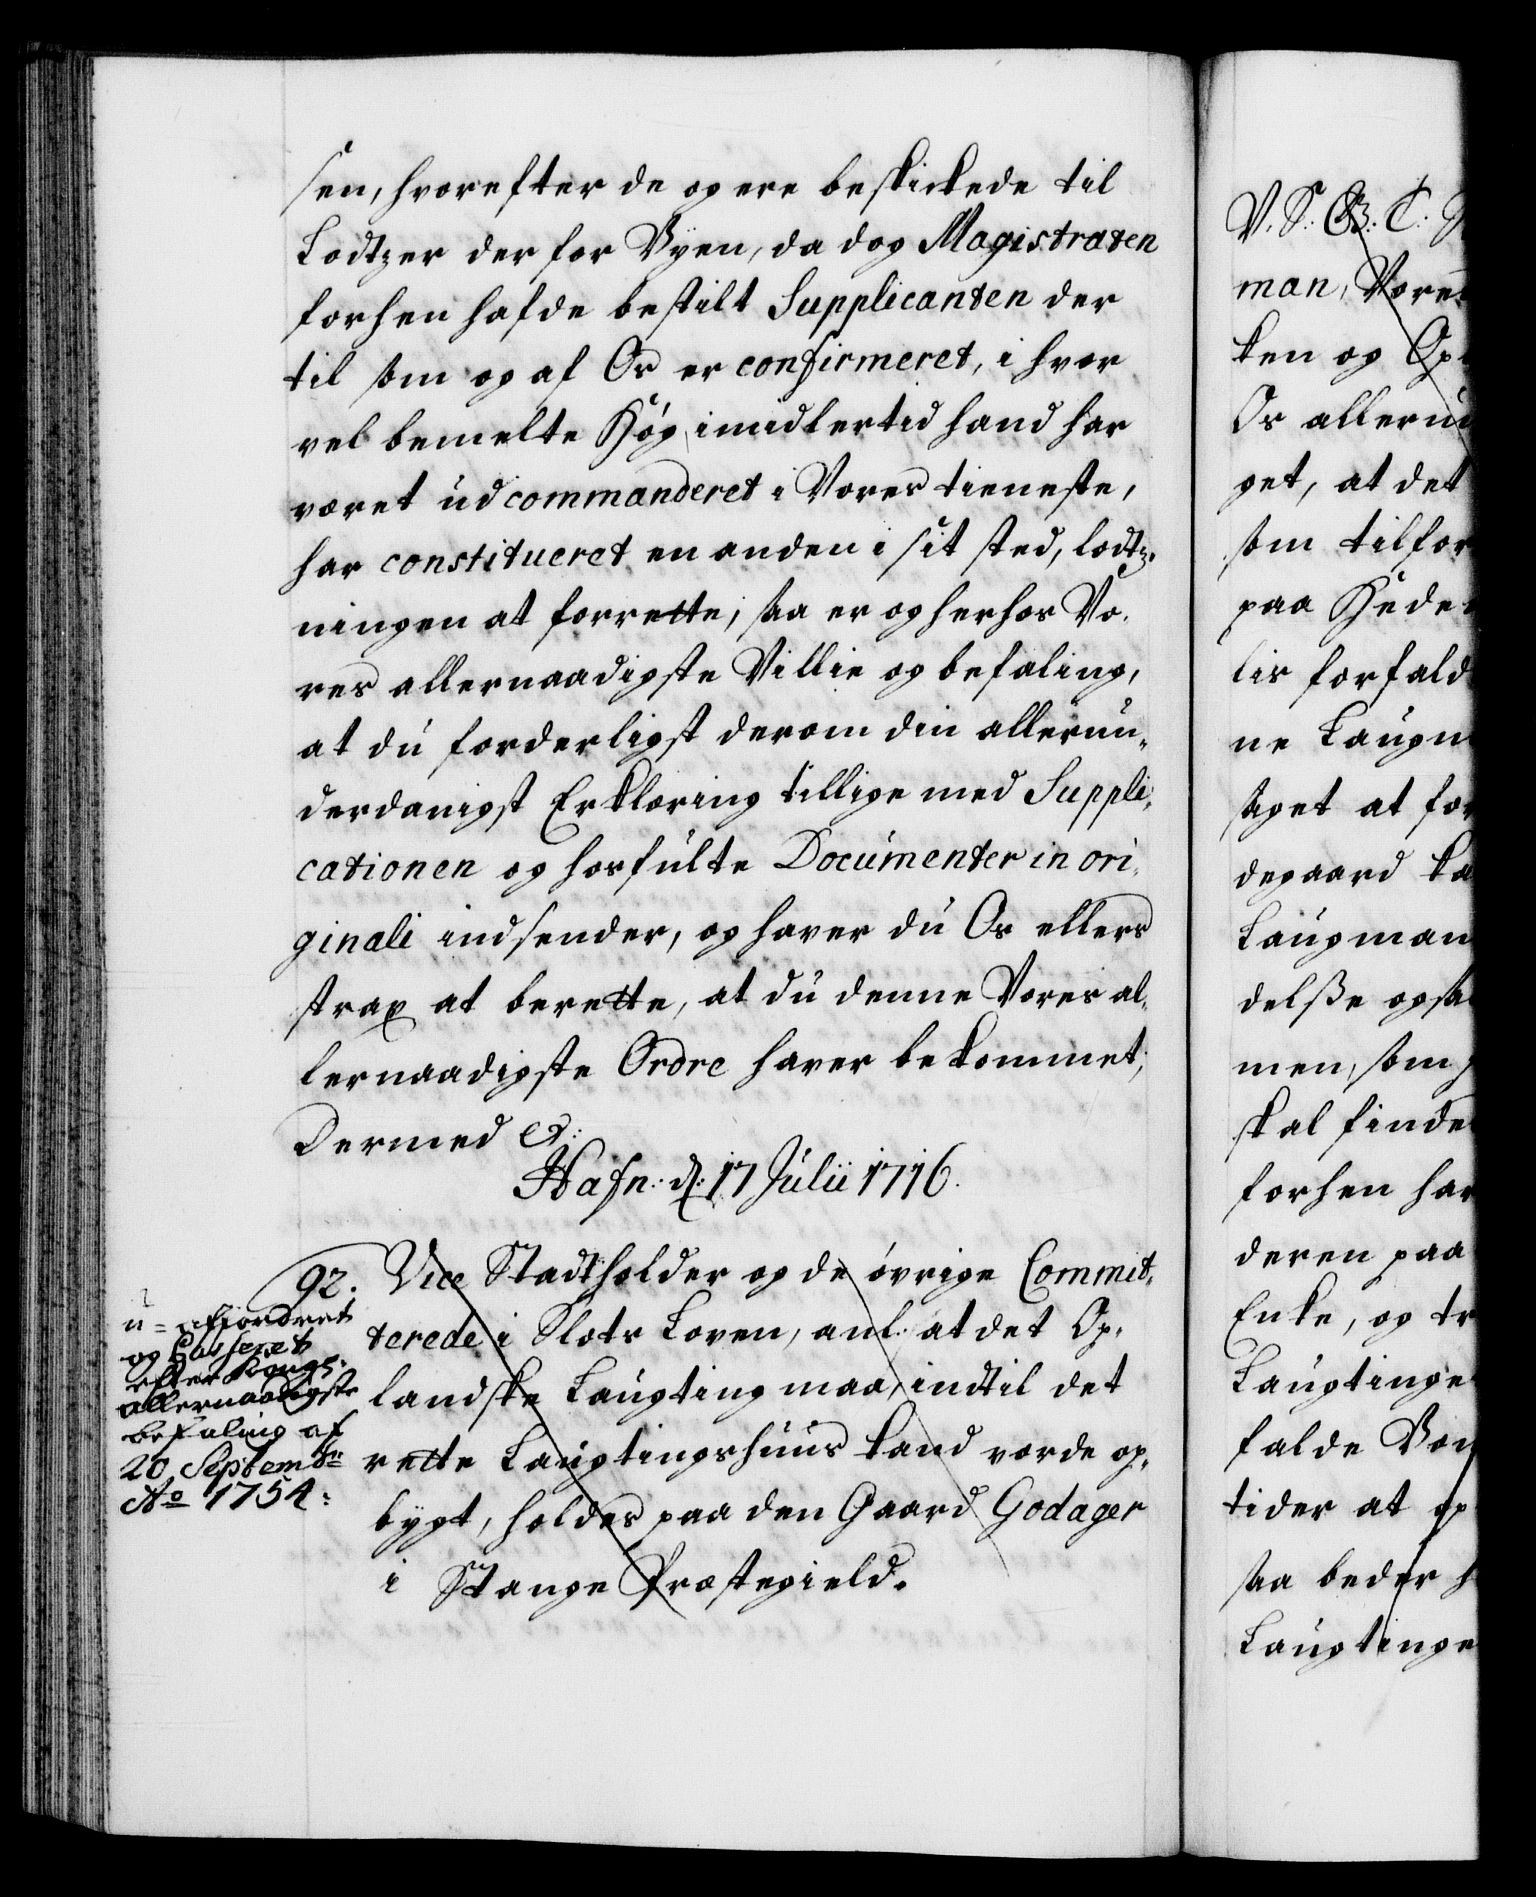 sen, hvorefter de og ere beskickede til
Lodtzer der for Byen, da dog Magistraten
forhen hafde bestilt Supplicanten der
til som og af Os er confirmeret, i hvor
vel bemelte Høg, imidlertid hand har
været udcommanderet i Vores tieneste,
har constitueret en anden i sit sted, lodtz-
ningen at forrette, saa er og herhos Vo-
res allernaadigste Villie og befaling,
at du forderligst derom din allerun-
derdanigst Erklæring tillige med Suppli-
cationen og hosfulte Documenter in ori-
ginali indsender, og haver du Os ellers
strax at berette, at du denne Vores al-
lernaadigste Ordre haver bekommet,
Dermed etc:
Hafn: d: 17 Julii 1716.
92. Vice Stadtholder og de øvrige Commit-
terede i Slots Loven, anl: at det Op-
landske Laugting maa, indtil det
rette Laugtingshuus kand vorde op-
bygt, holdes paa den Gaard Godager
i Stange Præstegield.
u-affordret
og Casseret
efter Kongs:
allernaadigste
befaling af
20 Septembr
Ao 1754:
V. S: G: T:
man, Vores
ken og Op
Os allerun
get, at det
som tilfor
paa Hede
lis forfald
ne Laugm
saget at for
degaard ka
Laugman
delsse og sa
men, som
skal finde
forhen har
deren paa
Enke, og tr
Laugtinge
falde Bon
tider at op
saa beder h
Laugtinge